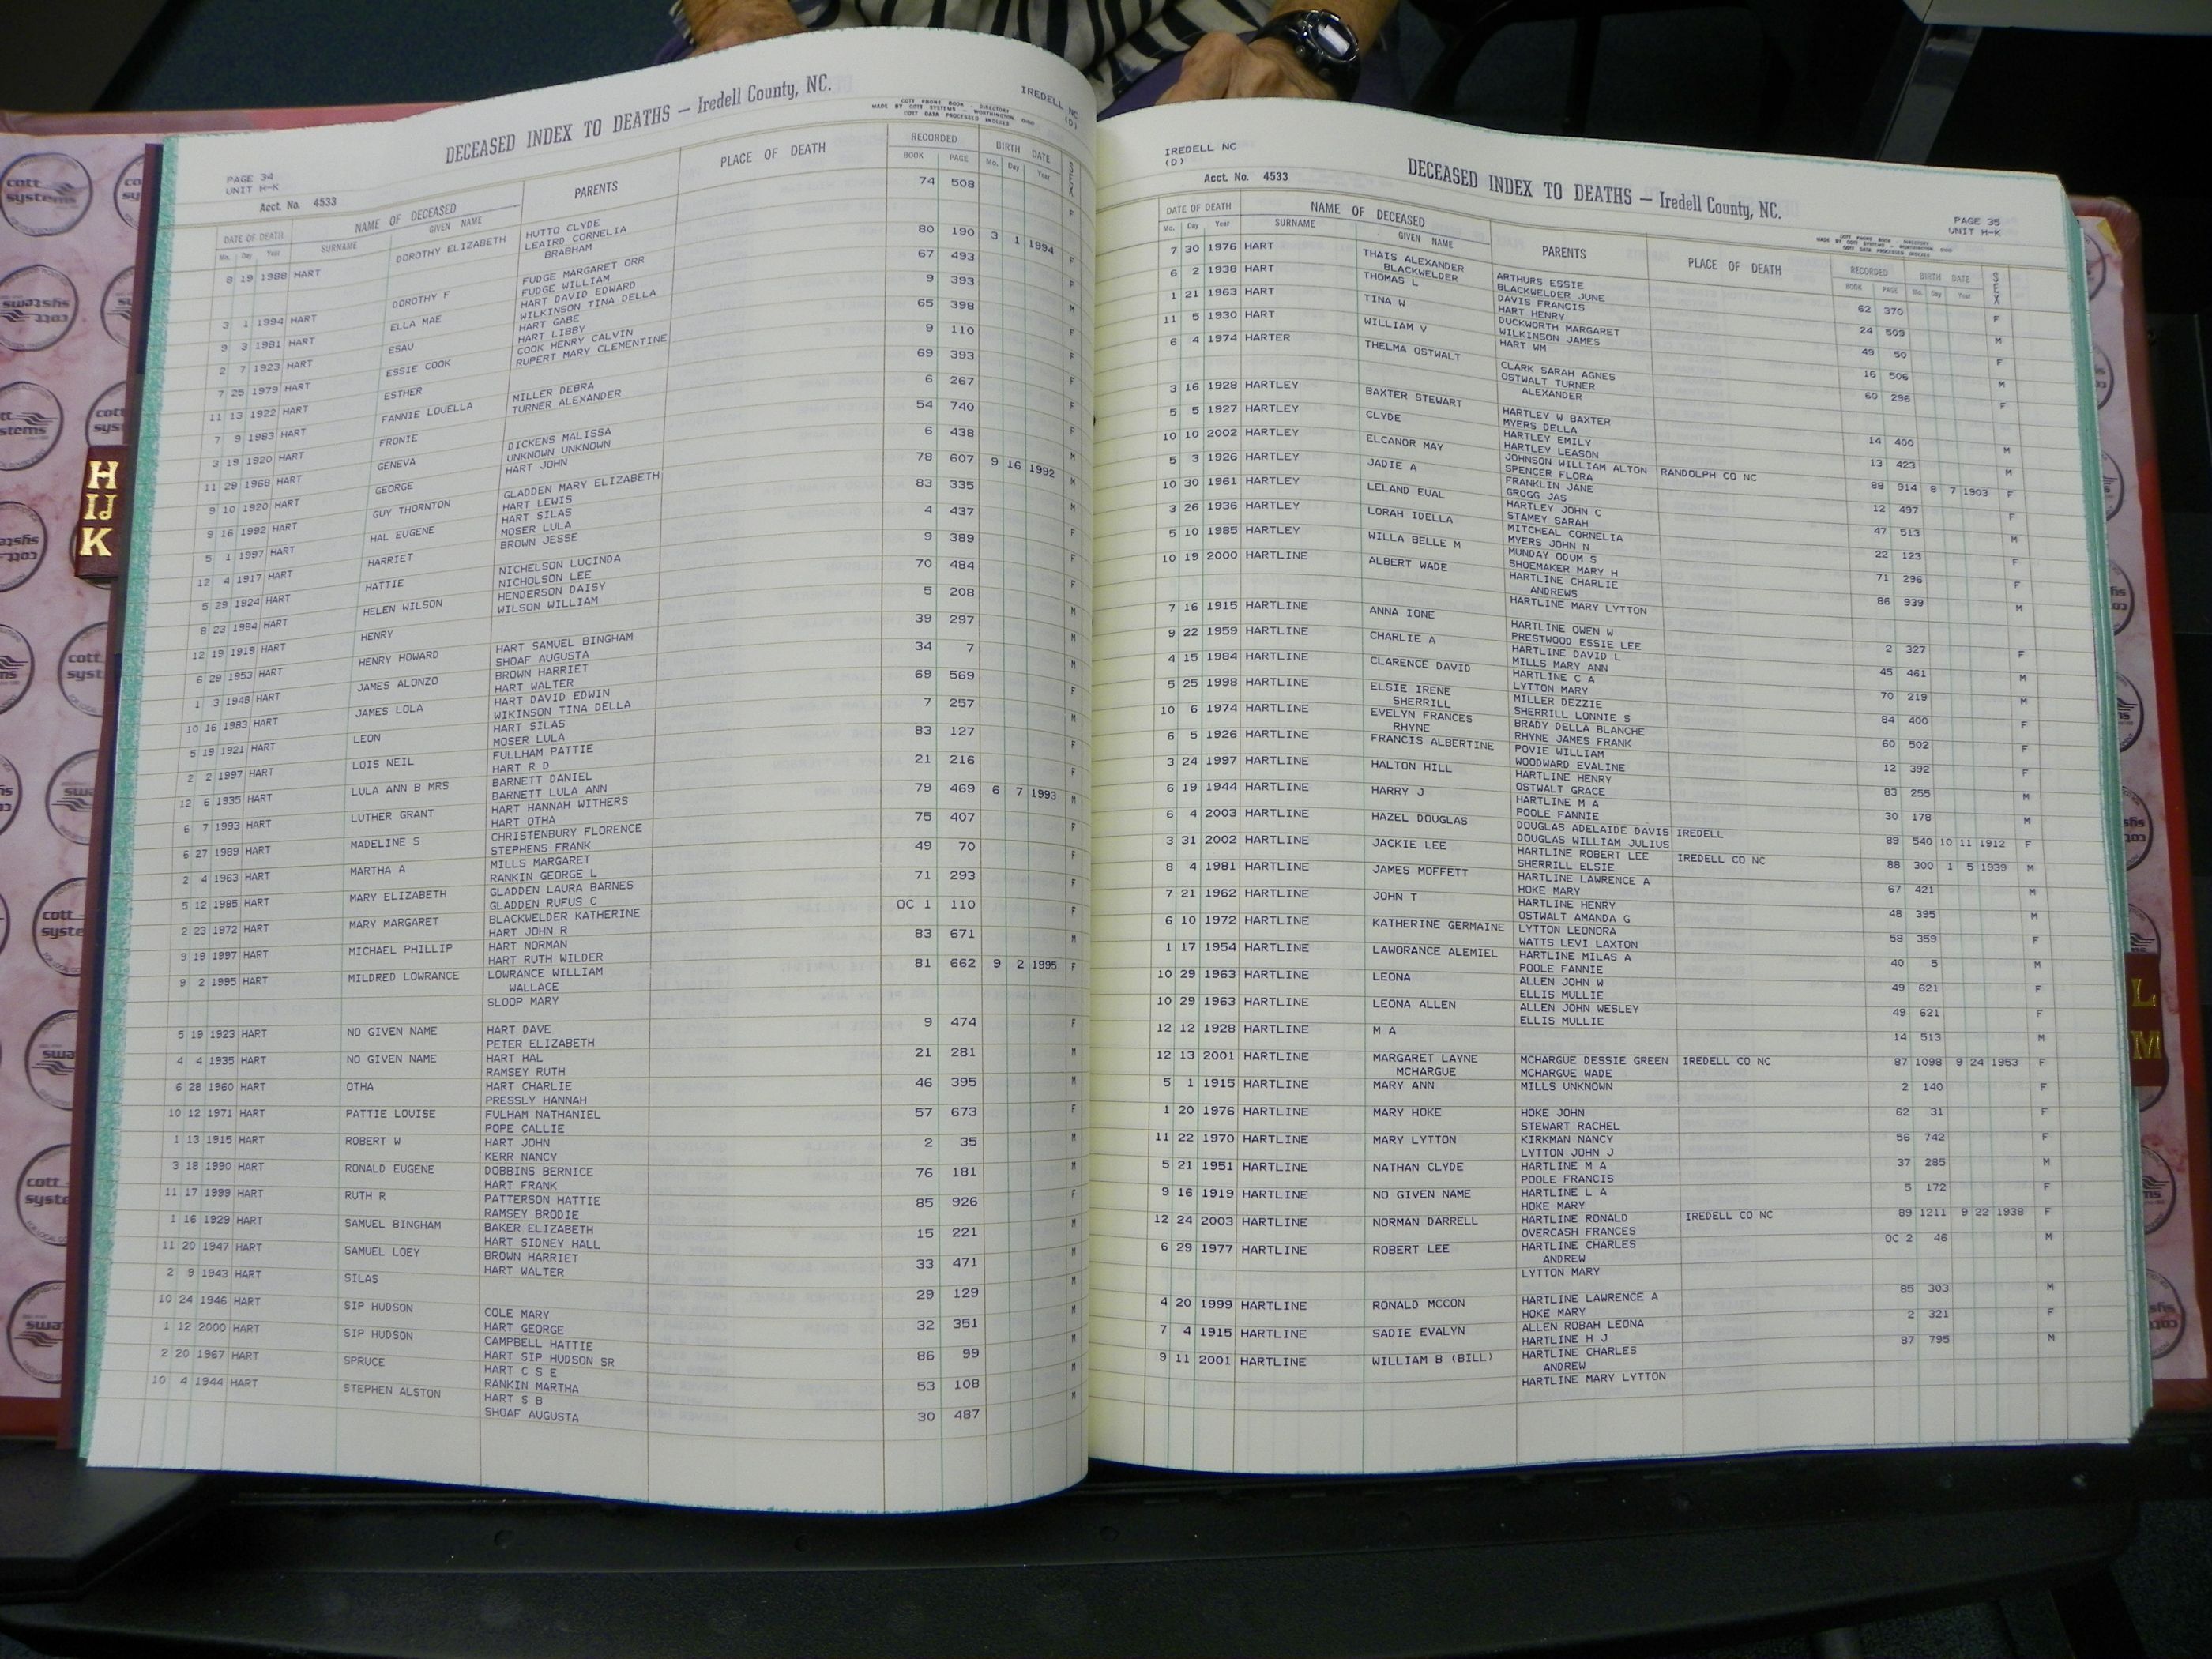 IREDELL NC
(D)
DECEASED INDEX TO DEATHS — Iredell County, NC.
COTT PHONE BOOK - DIRECTORY
MADE BY COTT SYSTEMS — WORTHINGTON, OHIO
COTT DATA PROCESSED INDEXES
PAGE 34
UNIT H-K
Acct. No. 4533
DATE OF DEATH NAME OF DECEASED PARENTS PLACE OF DEATH RECORDED BIRTH DATE SEX
Mo. Day Year SURNAME GIVEN NAME BOOK PAGE Mo. Day Year
8 19 1988 HART DOROTHY ELIZABETH HUTTO CLYDE 74 508 F
LEAIRD CORNELIA
BRABHAM
3 1 1994 HART DOROTHY F FUDGE MARGARET ORR 80 190 3 1 1994 F
FUDGE WILLIAM
9 3 1981 HART ELLA MAE HART DAVID EDWARD 67 493 F
WILKINSON TINA DELLA
2 7 1923 HART ESAU HART GABE 9 393 M
HART LIBBY
7 25 1979 HART ESSIE COOK COOK HENRY CALVIN 65 398 F
RUPERT MARY CLEMENTINE
11 13 1922 HART ESTHER 9 110 F
7 9 1983 HART FANNIE LOUELLA MILLER DEBRA 69 393 F
TURNER ALEXANDER
3 19 1920 HART FRONIE 6 267 F
11 29 1968 HART GENEVA DICKENS MALISSA 54 740 F
UNKNOWN UNKNOWN
9 10 1920 HART GEORGE HART JOHN 6 438 M
9 16 1992 HART GUY THORNTON GLADDEN MARY ELIZABETH 78 607 9 16 1992 M
HART LEWIS
5 1 1997 HART HAL EUGENE HART SILAS 83 335 M
MOSER LULA
12 4 1917 HART HARRIET BROWN JESSE 4 437 F
5 29 1924 HART HATTIE NICHELSON LUCINDA 9 389 F
NICHOLSON LEE
8 23 1984 HART HELEN WILSON HENDERSON DAISY 70 484 F
WILSON WILLIAM
12 19 1919 HART HENRY 5 208 M
6 29 1953 HART HENRY HOWARD HART SAMUEL BINGHAM 39 297 M
SHOAF AUGUSTA
1 3 1948 HART JAMES ALONZO BROWN HARRIET 34 7 M
HART WALTER
10 16 1983 HART JAMES LOLA HART DAVID EDWIN 69 569 F
WIKINSON TINA DELLA
5 19 1921 HART LEON HART SILAS 7 257 M
MOSER LULA
2 2 1997 HART LOIS NEIL FULLHAM PATTIE 83 127 F
HART R D
12 6 1935 HART LULA ANN B MRS BARNETT DANIEL 21 216 F
BARNETT LULA ANN
6 7 1993 HART LUTHER GRANT HART HANNAH WITHERS 79 469 6 7 1993 M
HART OTHA
6 27 1989 HART MADELINE S CHRISTENBURY FLORENCE 75 407 F
STEPHENS FRANK
2 4 1963 HART MARTHA A MILLS MARGARET 49 70 F
RANKIN GEORGE L
5 12 1985 HART MARY ELIZABETH GLADDEN LAURA BARNES 71 293 F
GLADDEN RUFUS C
2 23 1972 HART MARY MARGARET BLACKWELDER KATHERINE OC 1 110 F
HART JOHN R
9 19 1997 HART MICHAEL PHILLIP HART NORMAN 83 671 M
HART RUTH WILDER
9 2 1995 HART MILDRED LOWRANCE LOWRANCE WILLIAM 81 662 9 2 1995 F
WALLACE
SLOOP MARY
5 19 1923 HART NO GIVEN NAME HART DAVE 9 474 F
PETER ELIZABETH
4 4 1935 HART NO GIVEN NAME HART HAL 21 281 M
RAMSEY RUTH
6 28 1960 HART OTHA HART CHARLIE 46 395 M
PRESSLY HANNAH
10 12 1971 HART PATTIE LOUISE FULHAM NATHANIEL 57 673 F
POPE CALLIE
1 13 1915 HART ROBERT W HART JOHN 2 35 M
KERR NANCY
3 18 1990 HART RONALD EUGENE DOBBINS BERNICE 76 181 M
HART FRANK
11 17 1999 HART RUTH R PATTERSON HATTIE 85 926 F
RAMSEY BRODIE
1 16 1929 HART SAMUEL BINGHAM BAKER ELIZABETH 15 221 M
HART SIDNEY HALL
11 20 1947 HART SAMUEL LOEY BROWN HARRIET 33 471 M
HART WALTER
2 9 1943 HART SILAS 29 129 M
10 24 1946 HART SIP HUDSON COLE MARY 32 351 M
HART GEORGE
1 12 2000 HART SIP HUDSON CAMPBELL HATTIE 86 99 M
HART SIP HUDSON SR
2 20 1967 HART SPRUCE HART C S E 53 108 M
RANKIN MARTHA
10 4 1944 HART STEPHEN ALSTON HART S B 30 487 M
SHOAF AUGUSTA
IREDELL NC
(D)
Acct. No. 4533
DECEASED INDEX TO DEATHS — Iredell County, NC.
PAGE 35
UNIT H-K
COTT PHONE BOOK - DIRECTORY
MADE BY COTT SYSTEMS — WORTHINGTON, OHIO
COTT DATA PROCESSED INDEXES
DATE OF DEATH NAME OF DECEASED PARENTS PLACE OF DEATH RECORDED BIRTH DATE SEX
Mo. Day Year SURNAME GIVEN NAME BOOK PAGE Mo. Day Year
7 30 1976 HART THAIS ALEXANDER ARTHURS ESSIE 62 370 F
BLACKWELDER BLACKWELDER JUNE
6 2 1938 HART THOMAS L DAVIS FRANCIS 24 509 M
HART HENRY
1 21 1963 HART TINA W DUCKWORTH MARGARET 49 50 F
WILKINSON JAMES
11 5 1930 HART WILLIAM V HART WM 16 506 M
6 4 1974 HARTER THELMA OSTWALT CLARK SARAH AGNES 60 296 F
OSTWALT TURNER
ALEXANDER
3 16 1928 HARTLEY BAXTER STEWART HARTLEY W BAXTER 14 400 M
MYERS DELLA
5 5 1927 HARTLEY CLYDE HARTLEY EMILY 13 423 M
HARTLEY LEASON
10 10 2002 HARTLEY ELCANOR MAY JOHNSON WILLIAM ALTON RANDOLPH CO NC 88 914 8 7 1903 F
SPENCER FLORA
5 3 1926 HARTLEY JADIE A FRANKLIN JANE 12 497 F
GROGG JAS
10 30 1961 HARTLEY LELAND EUAL HARTLEY JOHN C 47 513 M
STAMEY SARAH
3 26 1936 HARTLEY LORAH IDELLA MITCHEAL CORNELIA 22 123 F
MYERS JOHN N
5 10 1985 HARTLEY WILLA BELLE M MUNDAY ODUM S 71 296 F
SHOEMAKER MARY H
10 19 2000 HARTLINE ALBERT WADE HARTLINE CHARLIE 86 939 M
ANDREWS
HARTLINE MARY LYTTON
7 16 1915 HARTLINE ANNA IONE HARTLINE OWEN W 2 327 F
PRESTWOOD ESSIE LEE
9 22 1959 HARTLINE CHARLIE A HARTLINE DAVID L 45 461 M
MILLS MARY ANN
4 15 1984 HARTLINE CLARENCE DAVID HARTLINE C A 70 219 M
LYTTON MARY
5 25 1998 HARTLINE ELSIE IRENE MILLER DEZZIE 84 400 F
SHERRILL SHERRILL LONNIE S
10 6 1974 HARTLINE EVELYN FRANCES BRADY DELLA BLANCHE 60 502 F
RHYNE RHYNE JAMES FRANK
6 5 1926 HARTLINE FRANCIS ALBERTINE POVIE WILLIAM 12 392 F
WOODWARD EVALINE
3 24 1997 HARTLINE HALTON HILL HARTLINE HENRY 83 255 M
OSTWALT GRACE
6 19 1944 HARTLINE HARRY J HARTLINE M A 30 178 M
POOLE FANNIE
6 4 2003 HARTLINE HAZEL DOUGLAS DOUGLAS ADELAIDE DAVIS IREDELL 89 540 10 11 1912 F
DOUGLAS WILLIAM JULIUS
3 31 2002 HARTLINE JACKIE LEE HARTLINE ROBERT LEE IREDELL CO NC 88 300 1 5 1939 M
SHERRILL ELSIE
8 4 1981 HARTLINE JAMES MOFFETT HARTLINE LAWRENCE A 67 421 M
HOKE MARY
7 21 1962 HARTLINE JOHN T HARTLINE HENRY 48 395 M
OSTWALT AMANDA G
6 10 1972 HARTLINE KATHERINE GERMAINE LYTTON LEONORA 58 359 F
WATTS LEVI LAXTON
1 17 1954 HARTLINE LAWORANCE ALEMIEL HARTLINE MILAS A 40 5 M
POOLE FANNIE
10 29 1963 HARTLINE LEONA ALLEN JOHN W 49 621 F
ELLIS MULLIE
10 29 1963 HARTLINE LEONA ALLEN ALLEN JOHN WESLEY 49 621 F
ELLIS MULLIE
12 12 1928 HARTLINE M A 14 513 M
12 13 2001 HARTLINE MARGARET LAYNE MCHARGUE DESSIE GREEN IREDELL CO NC 87 1098 9 24 1953 F
MCHARGUE MCHARGUE WADE
5 1 1915 HARTLINE MARY ANN MILLS UNKNOWN 2 140 F
1 20 1976 HARTLINE MARY HOKE HOKE JOHN 62 31 F
STEWART RACHEL
11 22 1970 HARTLINE MARY LYTTON KIRKMAN NANCY 56 742 F
LYTTON JOHN J
5 21 1951 HARTLINE NATHAN CLYDE HARTLINE M A 37 285 M
POOLE FRANCIS
9 16 1919 HARTLINE NO GIVEN NAME HARTLINE L A 5 172 F
HOKE MARY
12 24 2003 HARTLINE NORMAN DARRELL HARTLINE RONALD IREDELL CO NC 89 1211 9 22 1938 F
OVERCASH FRANCES
6 29 1977 HARTLINE ROBERT LEE HARTLINE CHARLES OC 2 46 M
ANDREW
LYTTON MARY
4 20 1999 HARTLINE RONALD MCCON HARTLINE LAWRENCE A 85 303 M
HOKE MARY
7 4 1915 HARTLINE SADIE EVALYN ALLEN ROBAH LEONA 2 321 F
HARTLINE H J
9 11 2001 HARTLINE WILLIAM B (BILL) HARTLINE CHARLES 87 795 M
ANDREW
HARTLINE MARY LYTTON
H
IJ
K
L
M
cott
systems